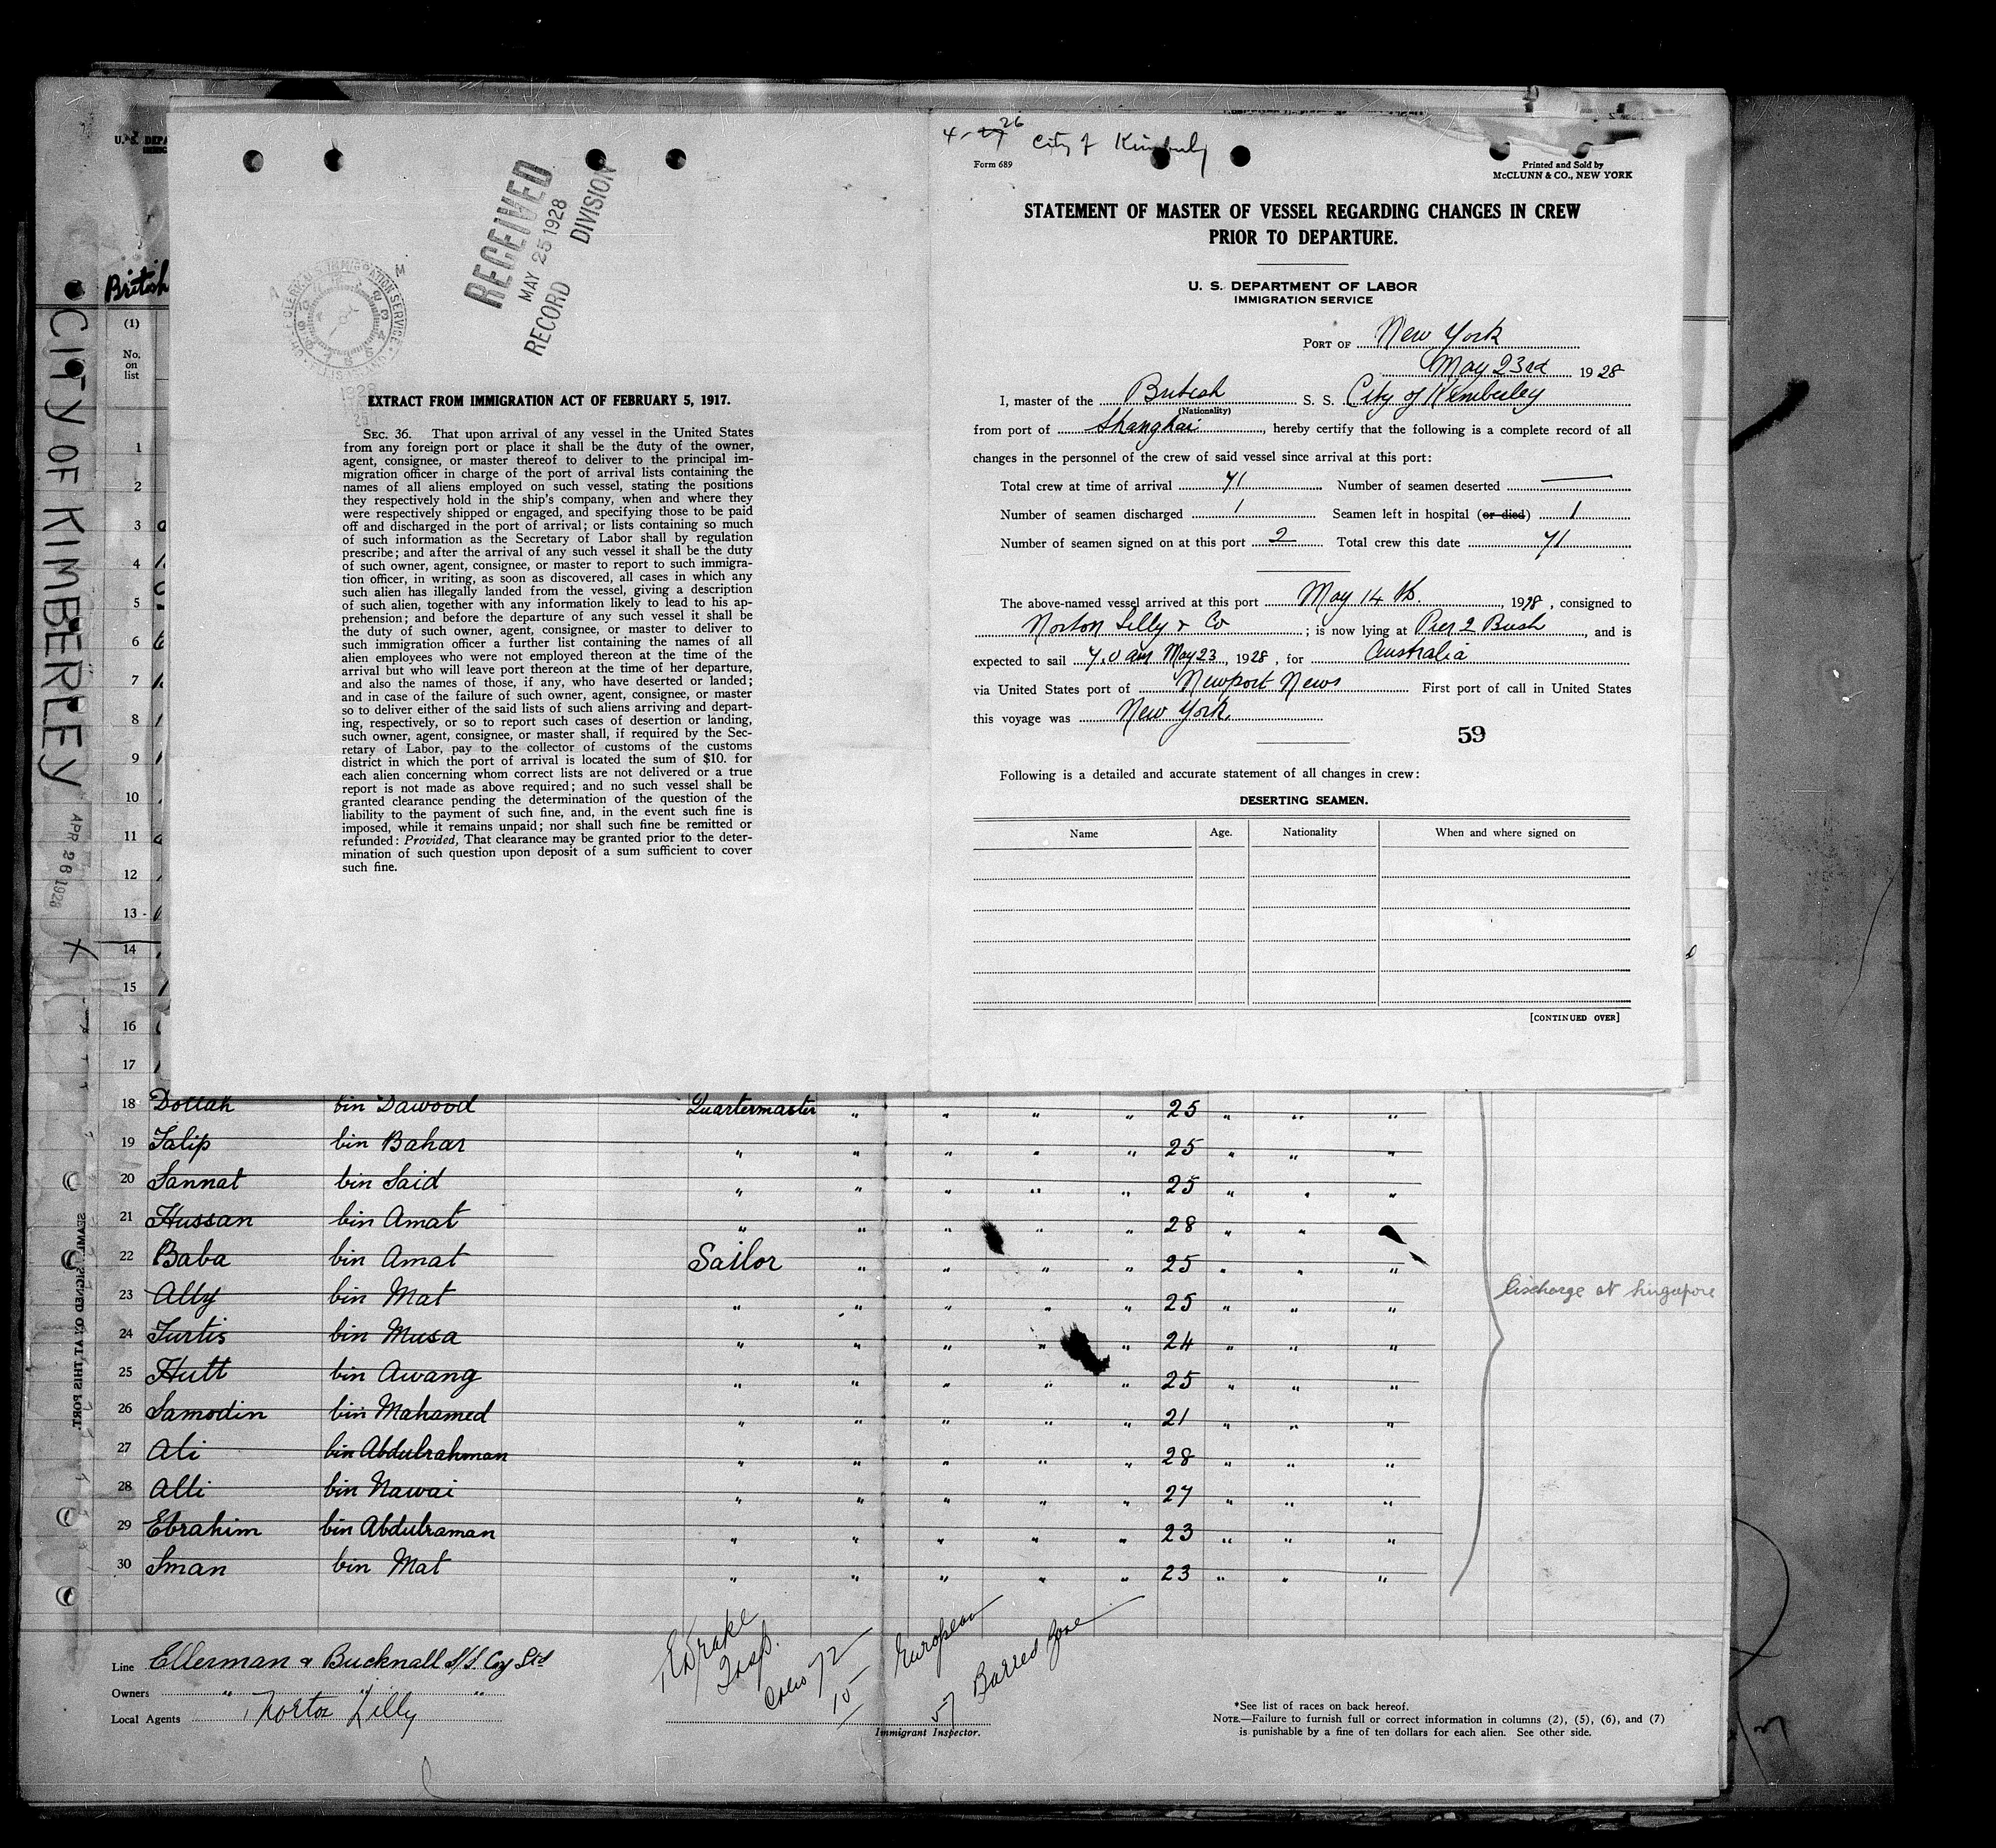 CITY OF KIMBERLEY
APR 26 1928
British
(1)
No.
on
list
1
2
3
4
5
6
7
8
9
10
11
12
13
14
15
16
17
RECEIVED
MAY 25 1928
RECORD DIVISION
EXTRACT FROM IMMIGRATION ACT OF FEBRUARY 5, 1917.
SEC. 36. That upon arrival of any vessel in the United States
from any foreign port or place it shall be the duty of the owner,
agent, consignee, or master thereof to deliver to the principal im-
migration officer in charge of the port of arrival lists containing the
names of all aliens employed on such vessel, stating the positions
they respectively hold in the ship's company, when and where they
were respectively shipped or engaged, and specifying those to be paid
off and discharged in the port of arrival; or lists containing so much
of such information as the Secretary of Labor shall by regulation
prescribe; and after the arrival of any such vessel it shall be the duty
of such owner, agent, consignee, or master to report to such immigra-
tion officer, in writing, as soon as discovered, all cases in which any
such alien has illegally landed from the vessel, giving a description
of such alien, together with any information likely to lead to his ap-
prehension; and before the departure of any such vessel it shall be
the duty of such owner, agent, consignee, or master to deliver to
such immigration officer a further list containing the names of all
alien employees who were not employed thereon at the time of the
arrival but who will leave port thereon at the time of her departure,
and also the names of those, if any, who have deserted or landed;
and in case of the failure of such owner, agent, consignee, or master
so to deliver either of the said lists of such aliens arriving and depart-
ing, respectively, or so to report such cases of desertion or landing,
such owner, agent, consignee, or master shall, if required by the Sec-
retary of Labor, pay to the collector of customs of the customs
district in which the port of arrival is located the sum of $10. for
each alien concerning whom correct lists are not delivered or a true
report is not made as above required; and no such vessel shall be
granted clearance pending the determination of the question of the
liability to the payment of such fine, and, in the event such fine is
imposed, while it remains unpaid; nor shall such fine be remitted or
refunded: Provided, That clearance may be granted prior to the deter-
mination of such question upon deposit of a sum sufficient to cover
such fine.
4-27 26 City of Kimberly
Form 689
Printed and Sold by
McCLUNN & CO., NEW YORK
STATEMENT OF MASTER OF VESSEL REGARDING CHANGES IN CREW
PRIOR TO DEPARTURE.
U. S. DEPARTMENT OF LABOR
IMMIGRATION SERVICE
PORT OF New York
May 23rd 1928
I, master of the British S. S. City of Kimberley
(Nationality)
from port of Shanghai, hereby certify that the following is a complete record of all
changes in the personnel of the crew of said vessel since arrival at this port:
Total crew at time of arrival 71 Number of seamen deserted —
Number of seamen discharged 1 Seamen left in hospital (or died) 1
Number of seamen signed on at this port 2 Total crew this date 71
The above-named vessel arrived at this port May 14th, 1928, consigned to
Norton Lilly & Co; is now lying at Pier 2 Bush, and is
expected to sail 7.0 am May 23, 1928, for Australia
via United States port of Newport News First port of call in United States
this voyage was New York
59
Following is a detailed and accurate statement of all changes in crew:
DESERTING SEAMEN.
Name Age. Nationality When and where signed on
[CONTINUED OVER]
18 Dollah bin Dawood Quartermaster " " " " 25 " " "
19 Talip bin Bahar " " " " " 25 " " "
20 Sannat bin Said " " " " " 25 " " "
21 Hussan bin Amat " " " " " 28 " "
22 Baba bin Amat Sailor " " " " 25 " " "
23 Ally bin Mat " " " " " 25 " " "
24 Turtis bin Musa " " " " " 24 " " "
25 Hutt bin Awang " " " " " 25 " " "
26 Samodin bin Mahamed " " " " " 21 " " "
27 Ali bin Abdulrahman " " " " " 28 " " "
28 Alli bin Nawai " " " " " 27 " " "
29 Ebrahim bin Abdulraman " " " " " 23 " " "
30 Sman bin Mat " " " " " 23 " " "
Discharge at Singapore
SEAMEN SIGNED ON AT THIS PORT.
Line Ellerman & Bucknall S/S Coy Ltd
Owners " " "
Local Agents Norton Lilly
Drake
Insp.
72
15 European
57 Barred Zone
Immigrant Inspector.
*See list of races on back hereof.
NOTE.—Failure to furnish full or correct information in columns (2), (5), (6), and (7)
is punishable by a fine of ten dollars for each alien. See other side.